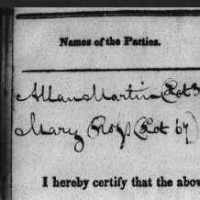 Names of the Parties.
Allan Martin (Lot 3
Mary Ross (Lot 67)
I hereby certify that the abov